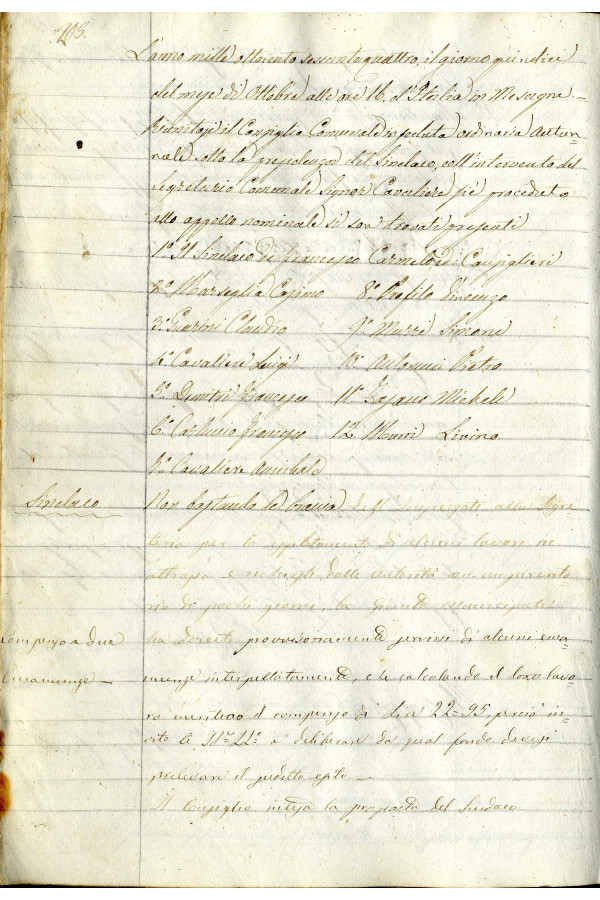 203.
L'anno mille ottocento sessantaquattro, il giorno quindici
del mese di Ottobre alle ore 16. d'Italia in Mesagne.
Riunitosi il Consiglio Comunale in seduta ordinaria Autun=
nale sotto la presidenza del Sindaco, coll'intervento del
Segretario Comunale Signor Cavaliere si è proceduto
allo appello nominale si son trovati presenti
1.° Il Sindaco di Francesco Carmelo di Consiglieri
2.° Marseglia Cosimo 8.° Profilo Vincenzo
3.° Guarini Claudio 9.° Murri Simone
4.° Cavaliere Luigi 10.° Antonucci Pietro
5.° Dimitri Francesco 11.° Fasano Michele
6.° Carluccio Francesco 12. Murri Livino
7.° Cavaliere Annibale
Sindaco
Non bastando le braccia degl'Impiegati alla Segre
teria per lo espletamento di alcuni lavori in
attrasso e richiesti dalle autorità
di pochi giorni, la Giunta municipale
Compenso a due
ha dovuto provvisoriamente servirsi di alcune ama
Amanuensi
nuensi interpellatamente, e che calcolando il loro lavo=
ro meritano il compenso di lire 22=95, perciò in=
vito le SS.rie LL.e a deliberare da qual fondo devesi
prelevare il suddetto esito
Il Consiglio intesa la proposta del Sindaco